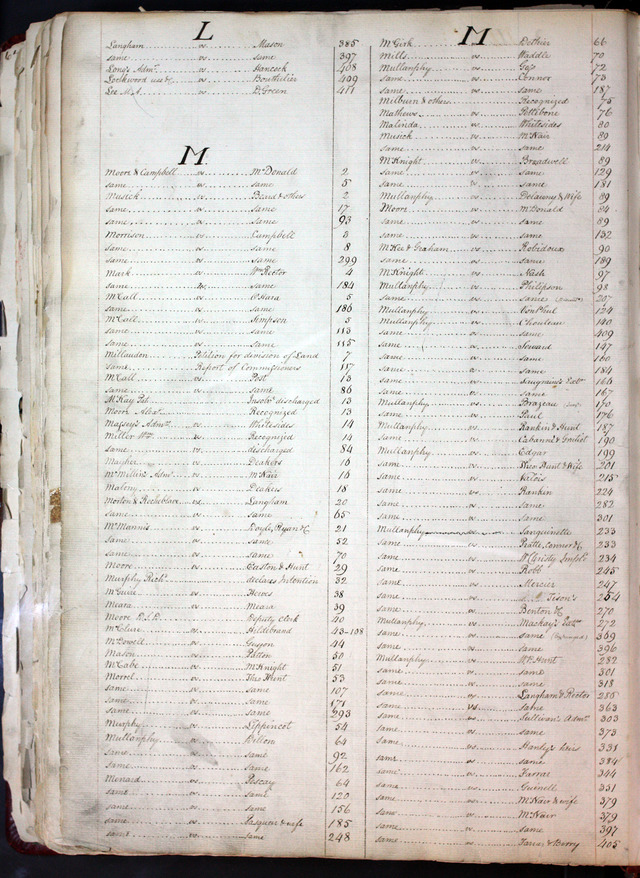 L
Langham vs. Mason 385
same vs. same 397
Long's Admr. vs. Hancock 408
Lockwood use &c vs. Bouthilier 409
Lee M.A. vs. D. Green 411
M
Moore & Campbell vs. McDonald 2
same vs. same 5
Musick vs. Beard & others 2
same vs. same 17
same vs. same 93
Morrison vs. Campbell 3
same vs. same 8
same vs. same 299
Mark vs. Wm. Rector 4
same vs. same 184
McCall vs. O'Hara 5
same vs. same 186
McCall vs. Simpson 5
same vs. same 113
same vs. same 115
Millaudon Petition for division of Land 7
same Report of Commissioners 117
McCall vs. Post 13
same vs. same 86
McKay Pet. Insolvt. discharged 13
Moore Recognized 13
Massey's Admr. vs. Whitesides 14
Miller Wm. vs. Recognized 14
same vs. discharged 84
Mayher vs. Deakers 16
McMillin's Admr. vs. McNair 16
Maleny vs. Deakers 18
Morton & Rocheblave vs. Langham 20
same vs. same 65
McMannis vs. Doyle, Ryan &c 21
same vs. same 52
same vs. same 70
Moore vs. Easton & Hunt 29
Murphy Richd. declares Intention 32
McGuire vs. Hewes 38
Meara vs. Meara 39
Moore Deputy Clerk 40
McClure vs. Hildebrand 43-108
McDowell vs. 44
Mason vs. Patton 50
McCabe vs. McKnight 51
Morrel vs. Theo Hunt 53
same vs. same 107
same vs. same 171
same vs. same 293
Murphy vs. Lippincot 54
Mullanphy vs. Wilton 64
same vs. same 92
same vs. same 162
Menard vs. Pescay 64
same vs. same 120
same vs. same 156
same vs. Pasquer & wife 185
same vs. same 248
M
McGirk vs. Bethier 66
Mills vs. Waddle 70
Mullanphy vs. 72
same vs. Connor 73
same vs. same 187
Milburn & others Recognized 75
Mathews vs. Pettibone 76
Malinda vs. Whitesides 80
Musick vs. McNair 89
same vs. same 214
McKnight vs. Broadwell 89
same vs. same 129
same vs. same 181
Mullanphy vs. Delauney & Wife 89
Moore vs. McDonald 84
same vs. same 89
same vs. same 132
McKee & Graham vs. Robidoux 90
same vs. same 189
McKnight vs. Nash 97
Mullanphy vs. Philipson 98
same vs. same 207
Mullanphy vs. 124
Mullanphy vs. Chouteau 140
same vs. same 409
same vs. Seward 147
same vs. same 160
same vs. same 184
same vs. Saugrain's Extr. 166
same vs. same 167
Mullanphy vs. Brazeau 150
same vs. Paul 176
Mullanphy vs. Rankin & Hund 187
same vs. Cabanné & 190
Mullanphy vs. Edgar 199
same vs. Wife 201
same vs. Valois 215
same vs. Rankin 224
same vs. same 282
same vs. same 301
Mullanphy vs. Sanguinette 233
same vs. Peatte, Connor &c 233
same vs. McChristy 234
same vs. Robb 245
same vs. Mercier 247
same vs. Tison's 254
same vs. Benton &c 270
Mullanphy vs. Mackay's Extr. 272
same vs. same 369
same vs. same 396
Mullanphy vs. Wm. Hunt 282
same vs. same 301
same vs. same 318
same vs. Langham & Rector 285
same vs. same 363
same vs. Sullivan's Admr. 303
same vs. same 373
same vs. Hanly's heirs 331
same vs. same 384
same vs. Farrar 344
same vs. Gunnell 351
same vs. McNair & wife 379
same vs. McNair 379
same vs. same 397
same vs. Farrar & Berry 405